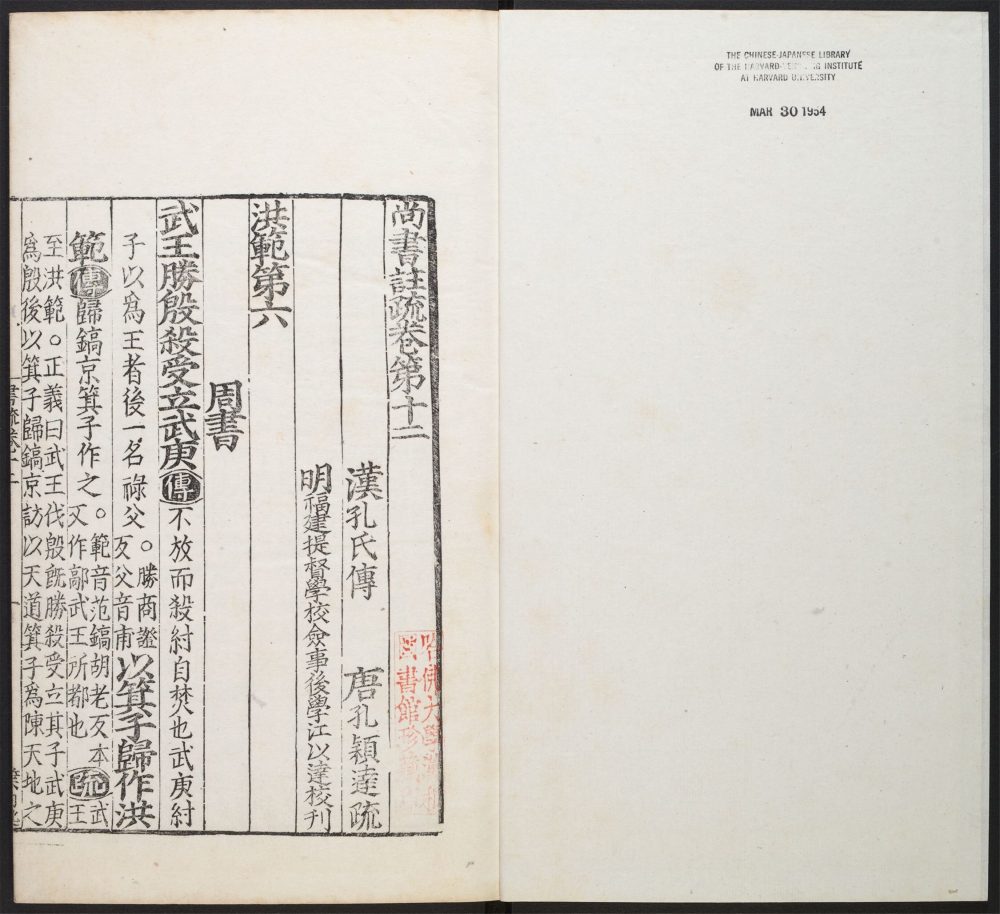 尚書註疏卷第十二
漢孔氏傳 唐孔穎達疏
明福建提督學校僉事後學江以達校刊
洪範第六
周書
武王勝殷殺受立武庚傳不放而殺紂自焚也武庚紂
子以爲王者後一名祿父○勝商證反父音甫以箕子歸作洪
範傳歸鎬京箕子作之○範音范鎬胡老反本又作鄗武王所都也疏武王
至洪範○正義曰武王伐殷既勝殺受立其子武庚
爲殷後以箕子歸鎬京訪以天道箕子爲陳天地之
THE CHINESE-JAPANESE LIBRARY
OF THE HARVARD-YENCHING INSTITUTE
AT HARVARD UNIVERSITY
MAR 30 1954